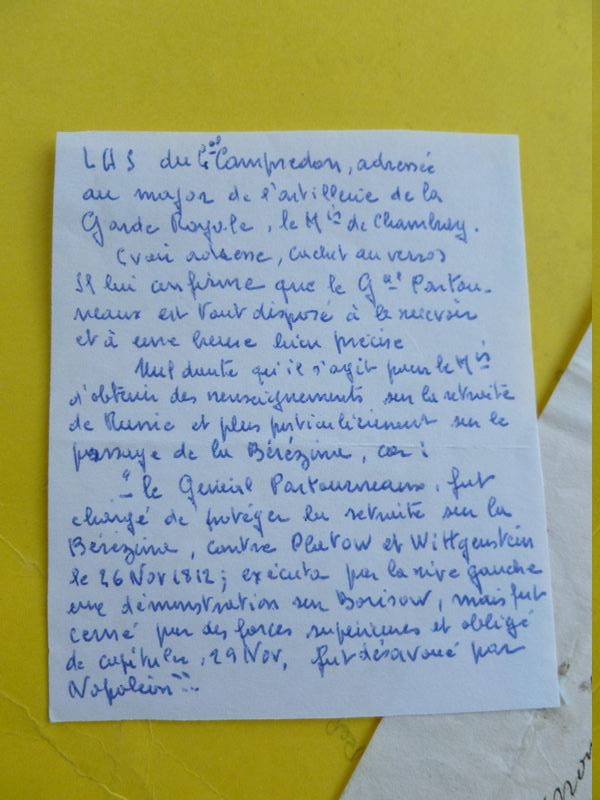 LAS du Gal Campredon, adressée
au major de l'artillerie de la
Garde Royale, le Mis de Chambray.
(voir adresse, cachet au verso)
Il lui confirme que le Gal Partou-
neaux est tout disposé à le recevoir
et à une heure bien précise
Nul doute qu'il s'agit pour le Mis
d'obtenir des renseignements sur la retraite
de Russie et plus particulièrement sur le
passage de la Bérézina, car :
" le Général Partourneaux, fut
chargé de protéger la retraite sur la
Bérézina, contre Platow et Wittgenstein
le 26 Nov 1812 ; exécuta par la rive gauche
une démonstration sur Borisow, mais fut
cerné par des forces supérieures et obligé
de capituler, 29 Nov, fut désavoué par
Napoléon"...